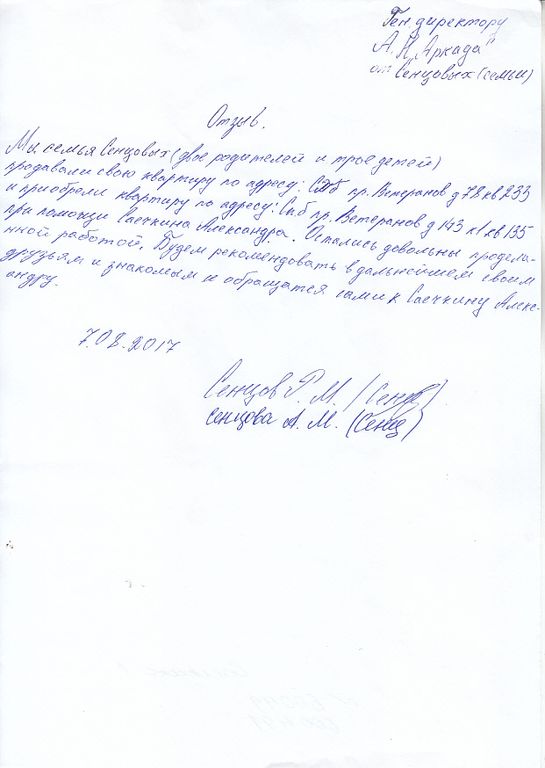 Ген. директору
А.Н. "Аркада"
от Сенцовых (семьи)
Отзыв.
Мы семья Сенцовых (двое родителей и трое детей)
продавали свою квартиру по адресу: СПб пр. Ветеранов д 78 кв 233
и приобрели квартиру по адресу: Спб пр. Ветеранов д 143 к1 кв 135
при помощи Саечкина Александра. Остались довольны продела-
нной работой. Будем рекомендовать в дальнейшем своим
друзьям и знакомым и обращатся сами к Саечкину Алекс-
андру.
7.08.2017
Сенцов Р. М. (Сенц)
Сенцова А. М. (Сенц)